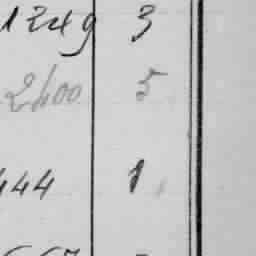 1249 3
2400 5
444 1